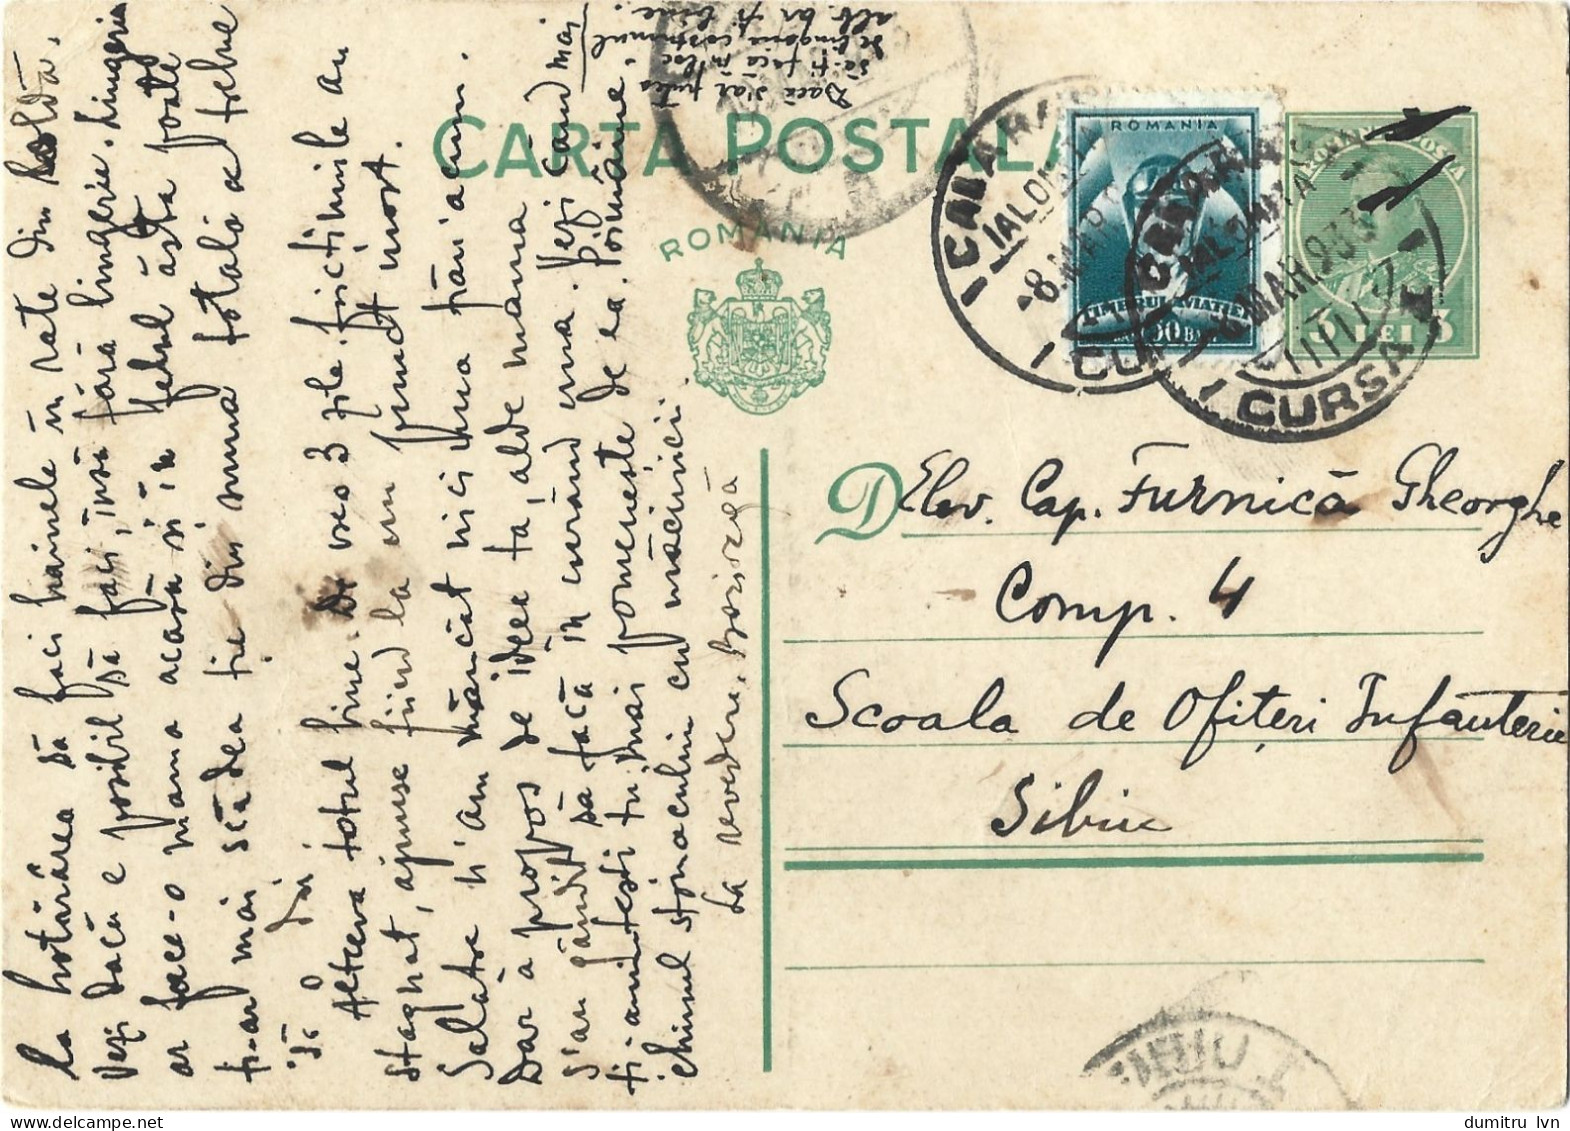 CARTA POSTALA
ROMANIA
ROMANIA
TIMBRUL AVIATIEI
50 BANI
POSTA
LEI
CALARASI
IALOMITA
8. MAR
CURSA
CALARASI
IALOMITA
8 MAR 933
CURSA
D Elev. Cap. Furnică Gheorghe
Comp. 4
Scoala de Ofițeri Infanterie
Sibiu
SIBIU. 1
la hotărârea să faci hainele în rate din
Vezi dacă e posibil să faci, însă fără lingerie. Lingeria
ar face-o mama acasă și în felul ăsta poate
ți-ar mai scădea ție din suma totală a trebui
să dai
Altceva totul bine. De vreo 3 zile fricțiunile au
stagnat, ajunse fiind la un punct mort.
Salatse n'am mâncat nici una pân'acum.
Dar à propos de ideea ta, alde mama
s'au gândit să facă în curând una. Vezi când mai
ți-amintești tu mai pomenește de ea. Poimâine,
chinul stomacului cu măcinici.
La revedere,
Dacă s'ar putea
să-ți facă în loc
de lingerie, costumul
alb. ar fi bine.
dumitru_lvn